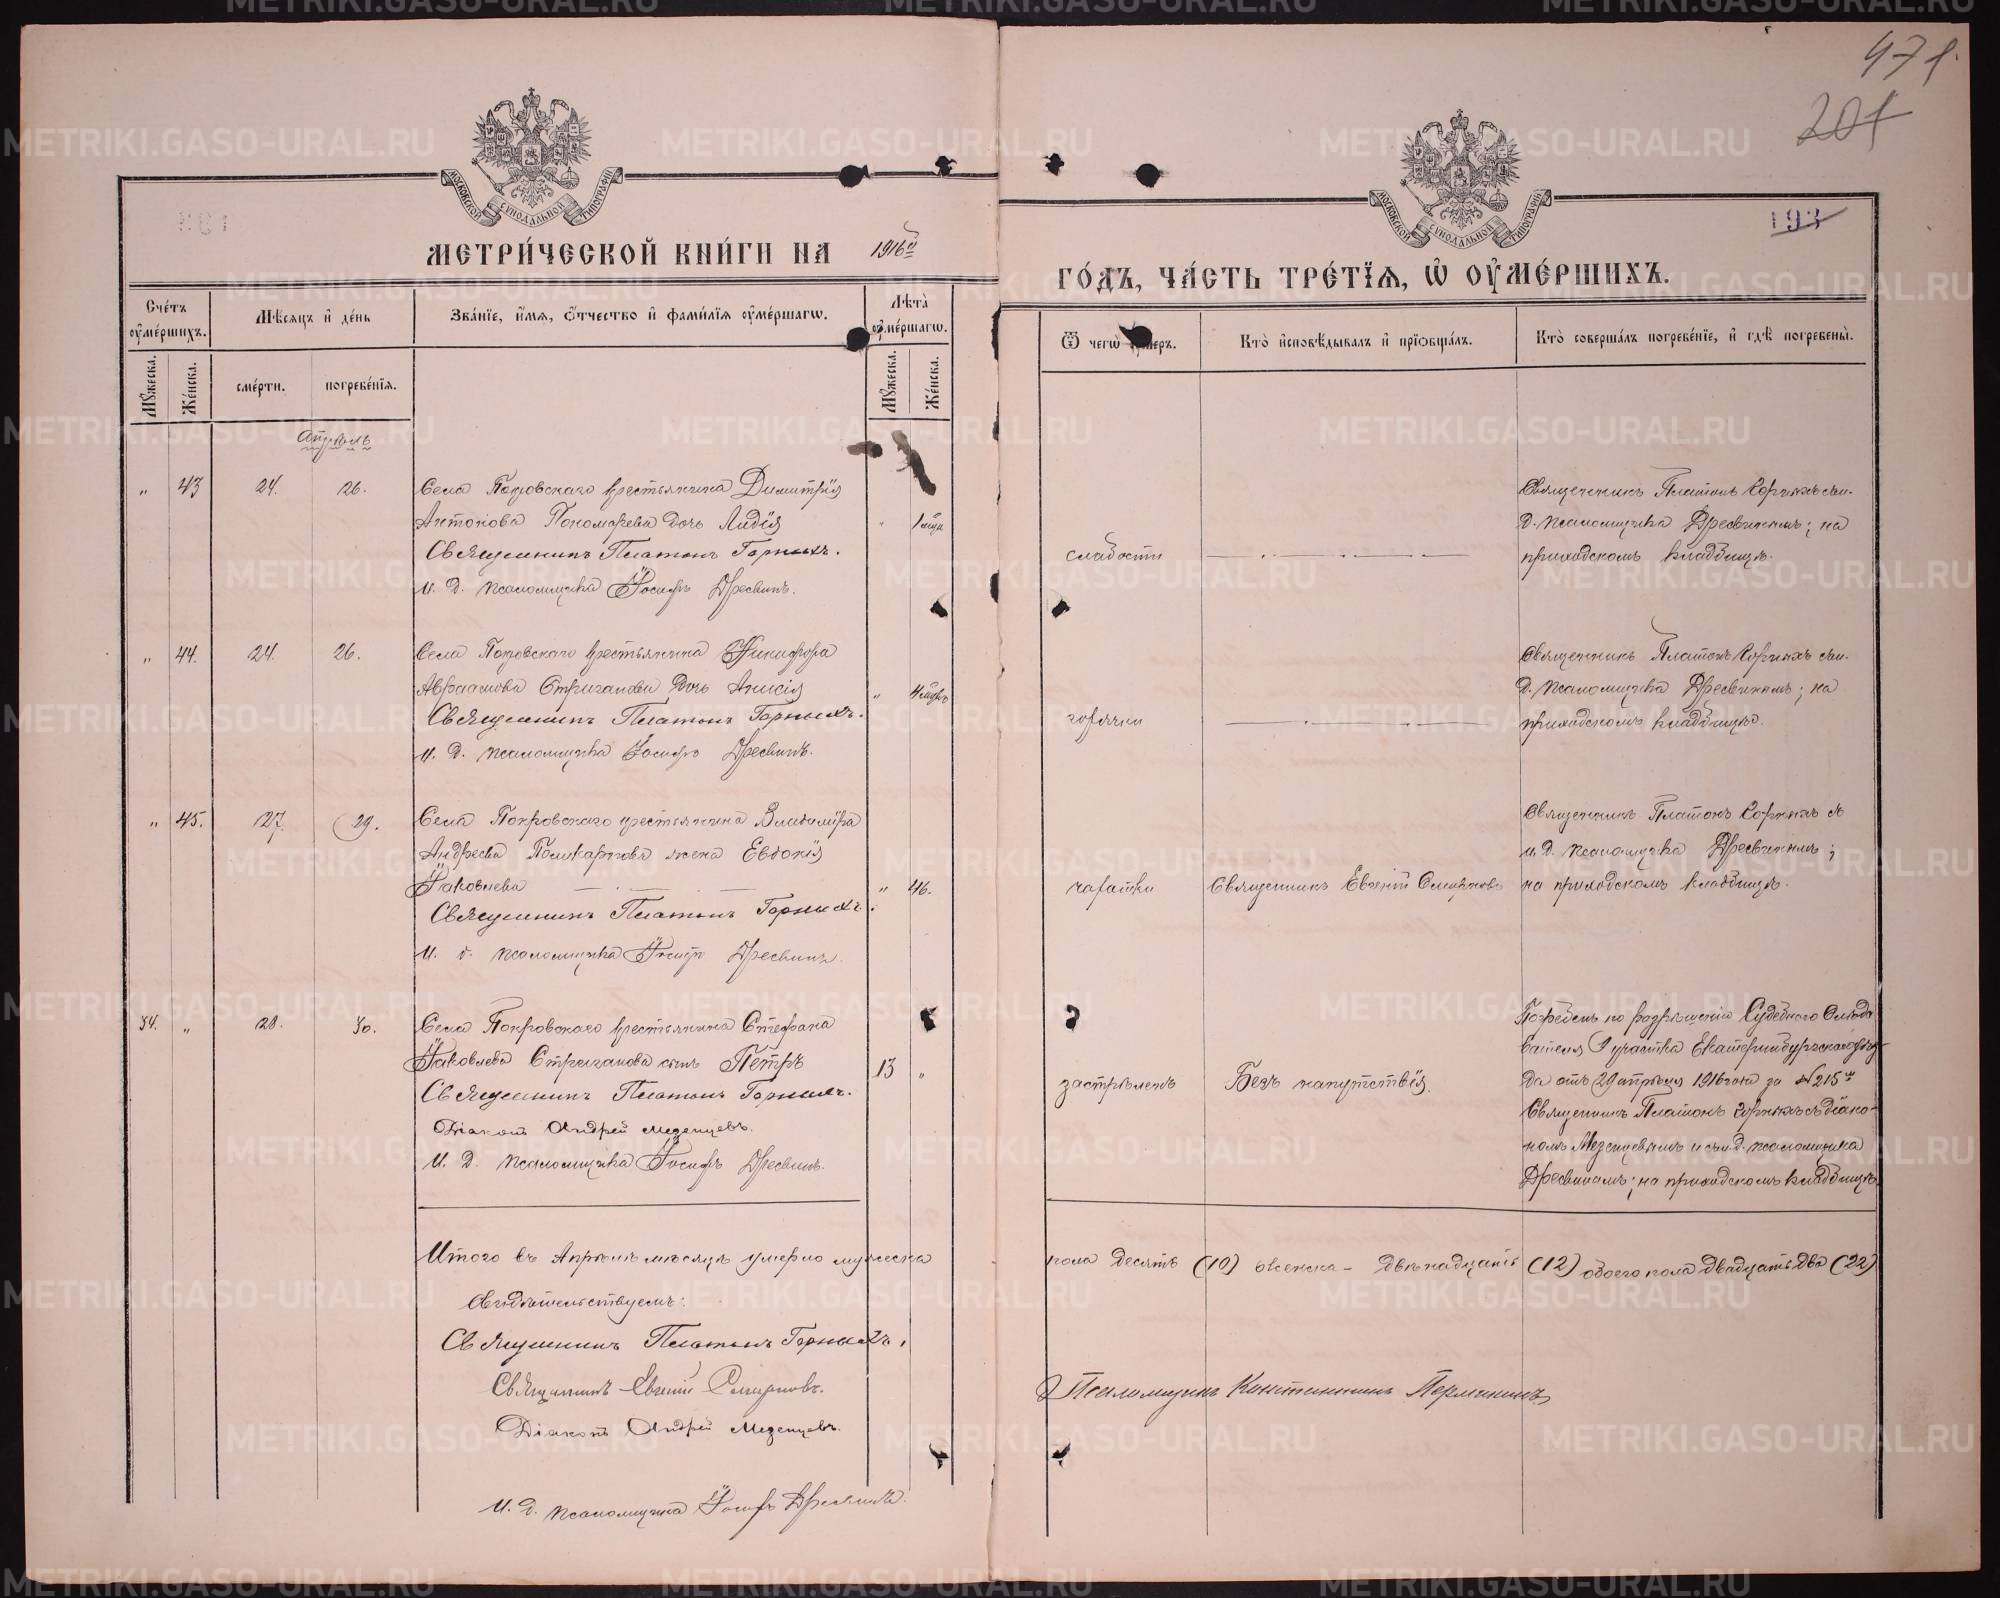 471.
201
193
МОСКОВСКОЙ СѴНОДАЛЬНОЙ ТИПОГРАФІИ
МОСКОВСКОЙ СѴНОДАЛЬНОЙ ТИПОГРАФІИ
МЕТРИ́ЧЕСКОЙ КНИ́ГИ НА 1916й
ГО́ДЪ, ЧА́СТЬ ТРЕ́ТІѦ, Ѡ҆ ОУ҆МЕ́РШИХЪ.
Сче́тъ оу҆ме́ршихъ.
Мѣ́сяцъ и҆ де́нь
Зва́ніе, и҆́мя, ѻ҆́тчество и҆ фами́лія оу҆ме́ршагѡ.
Лѣта̀ оу҆ме́ршагѡ.
Ѿ чегѡ̀ оу҆́меръ.
Кто̀ и҆сповѣ́дывалъ и҆ прїѡбща́лъ.
Кто̀ соверша́лъ погребе́ніе, и҆ гдѣ̀ погребены̀.
Му́жеска.
Же́нска.
сме́рти.
погребе́нія.
Му́жеска.
Же́нска.
Апрѣль
" 43 24. 26.
Села Покровскаго крестьянина Димитрія
Антонова Пономарева дочь Лидія
" 1 мца
Священникъ Платонъ Горныхъ.
И. д. псаломщика Іосифъ Дресвинъ.
слабости
Священникъ Платонъ Горныхъ съ и.
д. псаломщика Дресвинымъ; на
приходскомъ кладбищѣ.
" 44. 24. 26.
Села Покровскаго крестьянина Никифора
Авраамова Стриганова дочь Анисія
" 4 мцевъ
Священникъ Платонъ Горныхъ.
И. д. псаломщика Іосифъ Дресвинъ.
горячки
Священникъ Платонъ Горныхъ съ и.
д. псаломщика Дресвинымъ; на
приходскомъ кладбищѣ.
" 45. 27. 29.
Села Покровскаго крестьянина Владиміра
Андреева Поликарпова жена Евдокія
Яковлева
" 46.
Священникъ Платонъ Горныхъ.
И. д. псаломщика Іосифъ Дресвинъ.
чахотки
Священникъ Евгеній Смирновъ
Священникъ Платонъ Горныхъ съ
и. д. псаломщика Дресвинымъ;
на приходскомъ кладбищѣ.
34. " 28. 30.
Села Покровскаго крестьянина Стефана
Яковлева Стриганова сынъ Петръ
13 "
Священникъ Платонъ Горныхъ.
Діаконъ Андрей Мезенцевъ.
И. д. псаломщика Іосифъ Дресвинъ.
застрѣленъ
Безъ напутствія.
Погребенъ по разрѣшенію Судебного Слѣдо
вателя 1 участка Екатеринбургскаго уѣз
да отъ 29 апрѣля 1916 года за № 215м
Священникъ Платонъ Горныхъ съ діако-
номъ Мезенцевымъ и съ и. д. псаломщика
Дресвинымъ; на приходскомъ кладбищѣ.
Итого въ Апрѣлѣ мѣсяцѣ умерло мужеска
пола десять (10) женска - двѣнадцать (12) обоего пола двадцать два (22)
Свидѣтельствуемъ:
Священникъ Платонъ Горныхъ.
Священникъ Евгеній Смирновъ.
Діаконъ Андрей Мезенцевъ.
Псаломщикъ Константинъ Пермикинъ
И. д. псаломщика Іосифъ Дресвинъ.
METRIKI.GASO-URAL.RU